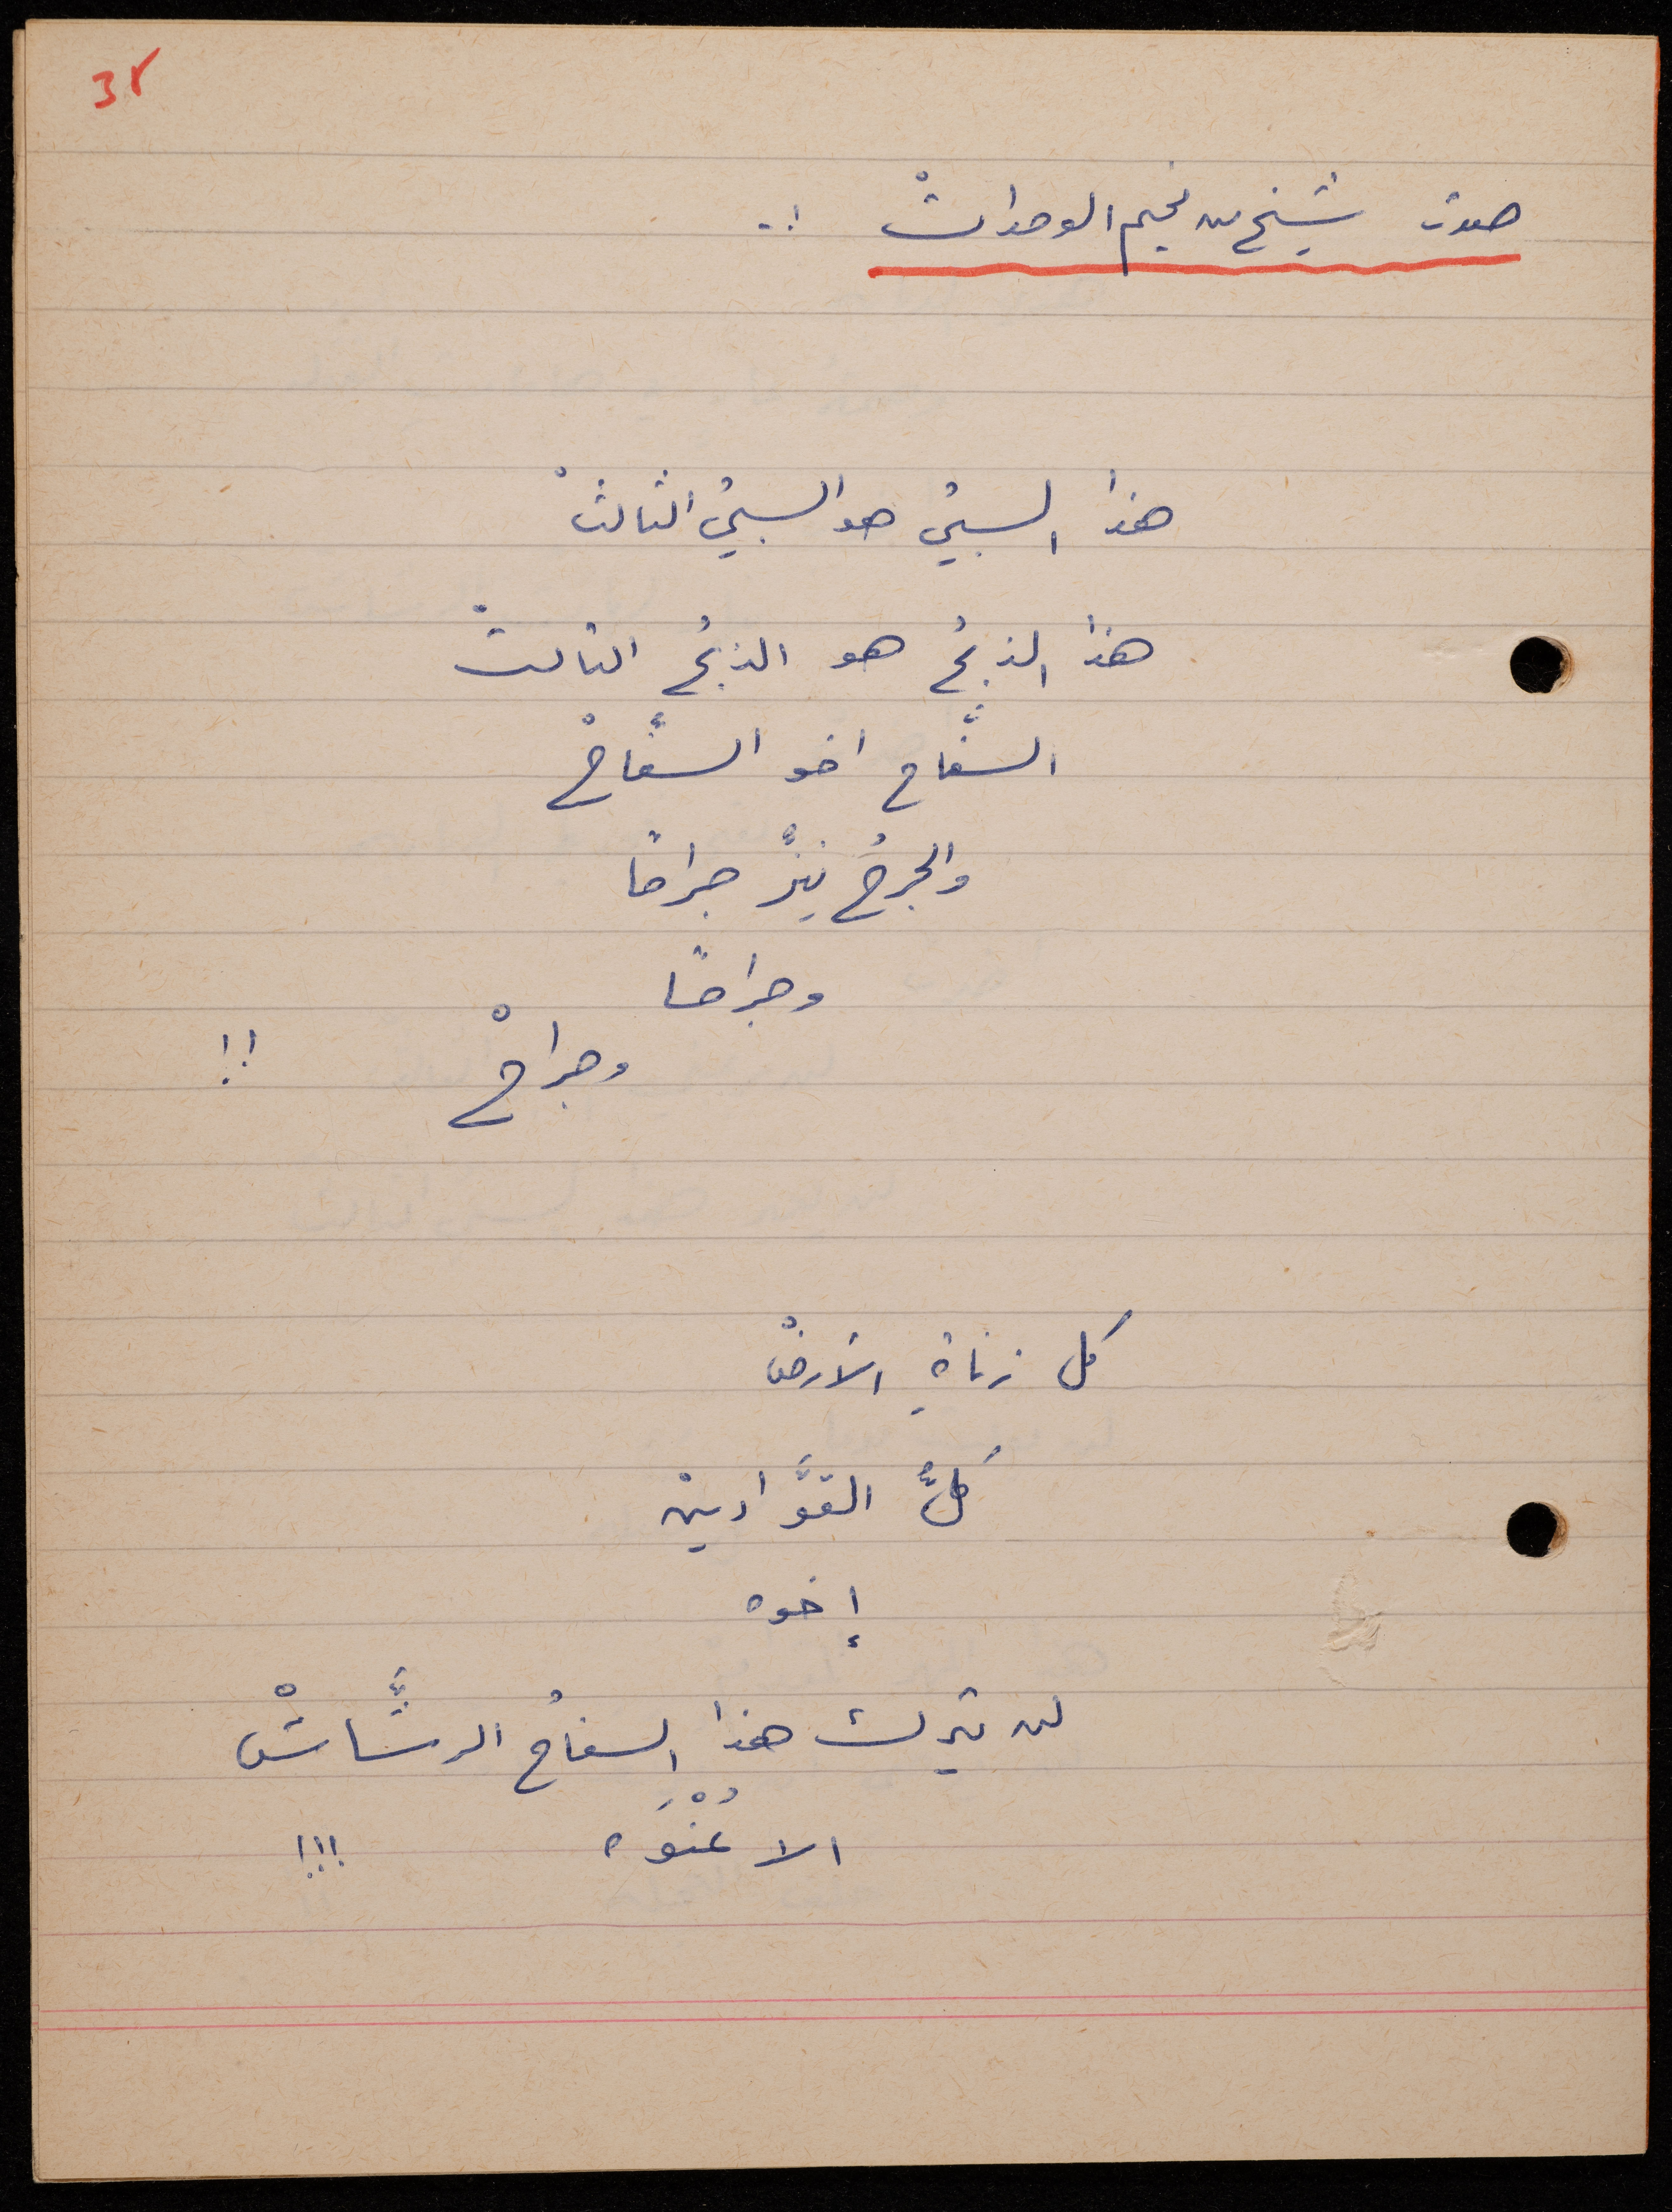 ٣٢
صوت شيخ من مخيم الوحداتْ !..
هذا السبيُ هو السبيُ الثالثْ
هذا الذبحُ هو الذبحُ الثالثْ
السفَّاح اخو السفَّاحْ
والجرحُ ينزُّ جراحًا
وجراحًا
وجراحْ !!
كل زناةِ الأرضْ
كلُّ القوَّادين
إخوه
لن يترك هذا السفاحُ الرشَّاشْ
الا عُنْوَه !!!